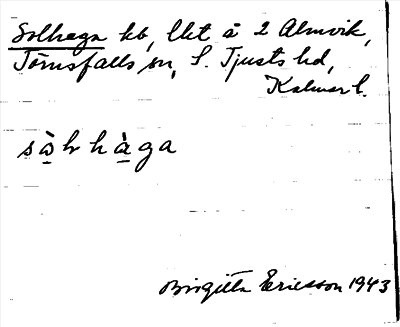 Solhaga hb, lht å 2 Almvik,
Törnsfalls sn, S. Tjusts hd,
Kalmar l.
sò̱lhà̱ga
Birgitta Ericsson 1943